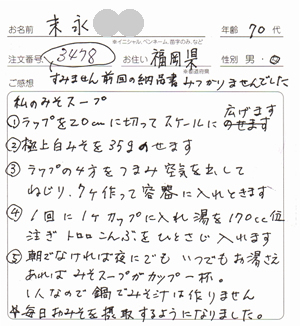 お名前 末永
※イニシャル、ペンネーム、苗字のみ、など
年齢 70代
注文番号 3478
お住い 福岡県
※都道府県
性別 男・
ご感想 すみません前回の納品書みつかりませんでした
私のみそスープ
①ラップを20cmに切ってスケールに広げます
②極上白みそを35gのせます
③ラップの4方をつまみ空気を出して
ねじり、7ヶ作って容器に入れときます
④1回に1ヶカップに入れ湯を170cc位
注ぎトロロこんぶをひとさじ入れます
⑤朝でなければ夜にでもいつでもお湯さえ
あればみそスープがカップ一杯。
1人なので鍋でみそ汁は作りません
※毎日おみそを摂取するようになりました。